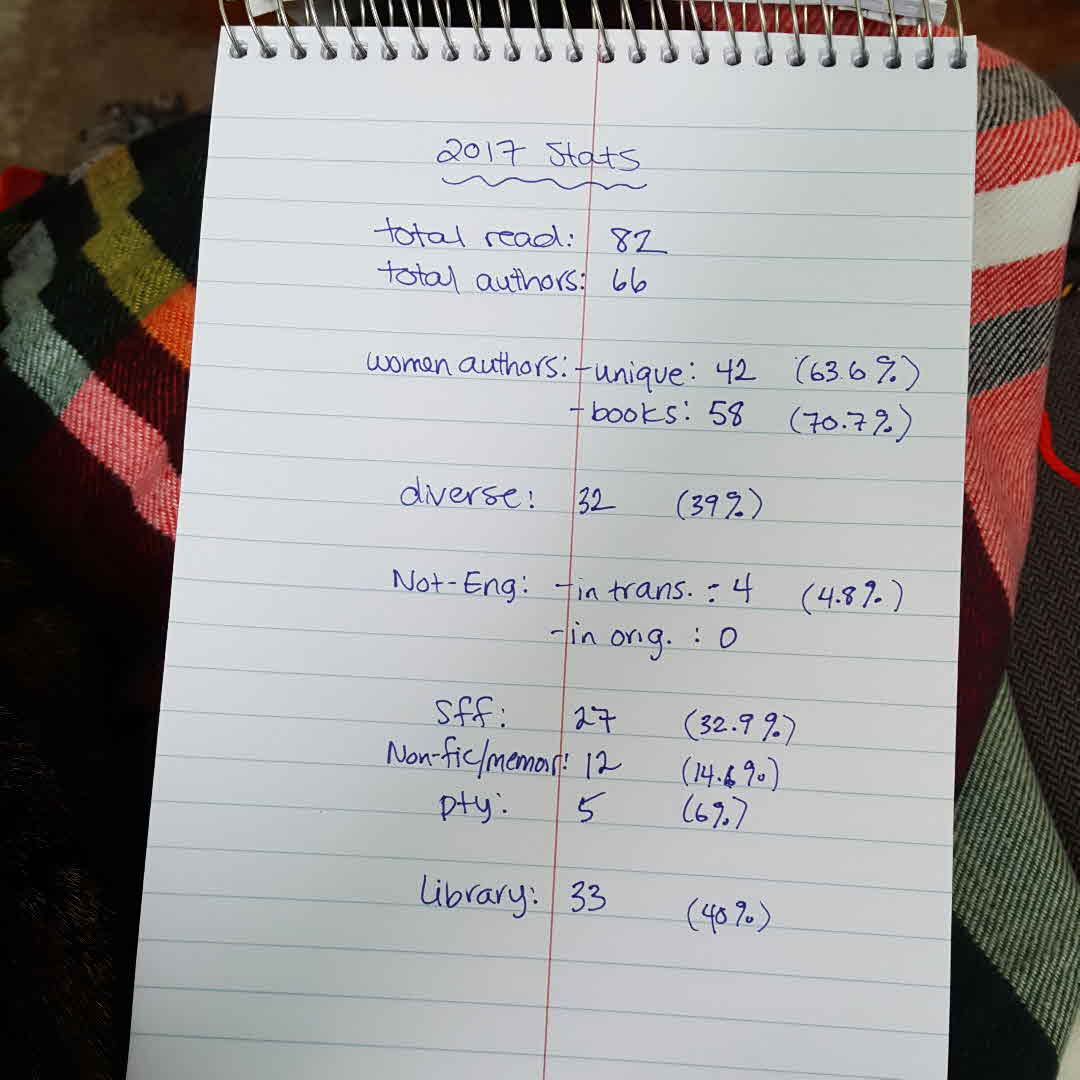 2017 Stats
total read: 82
total authors: 66
women authors: - unique: 42 (63.6%)
- books: 58 (70.7%)
diverse: 32 (39%)
Not-Eng: - in trans. : 4 (4.8%)
- in orig. : 0
Sff: 27 (32.9%)
Non-fic/memoir: 12 (14.6%)
pty: 5 (6%)
Library: 33 (40%)